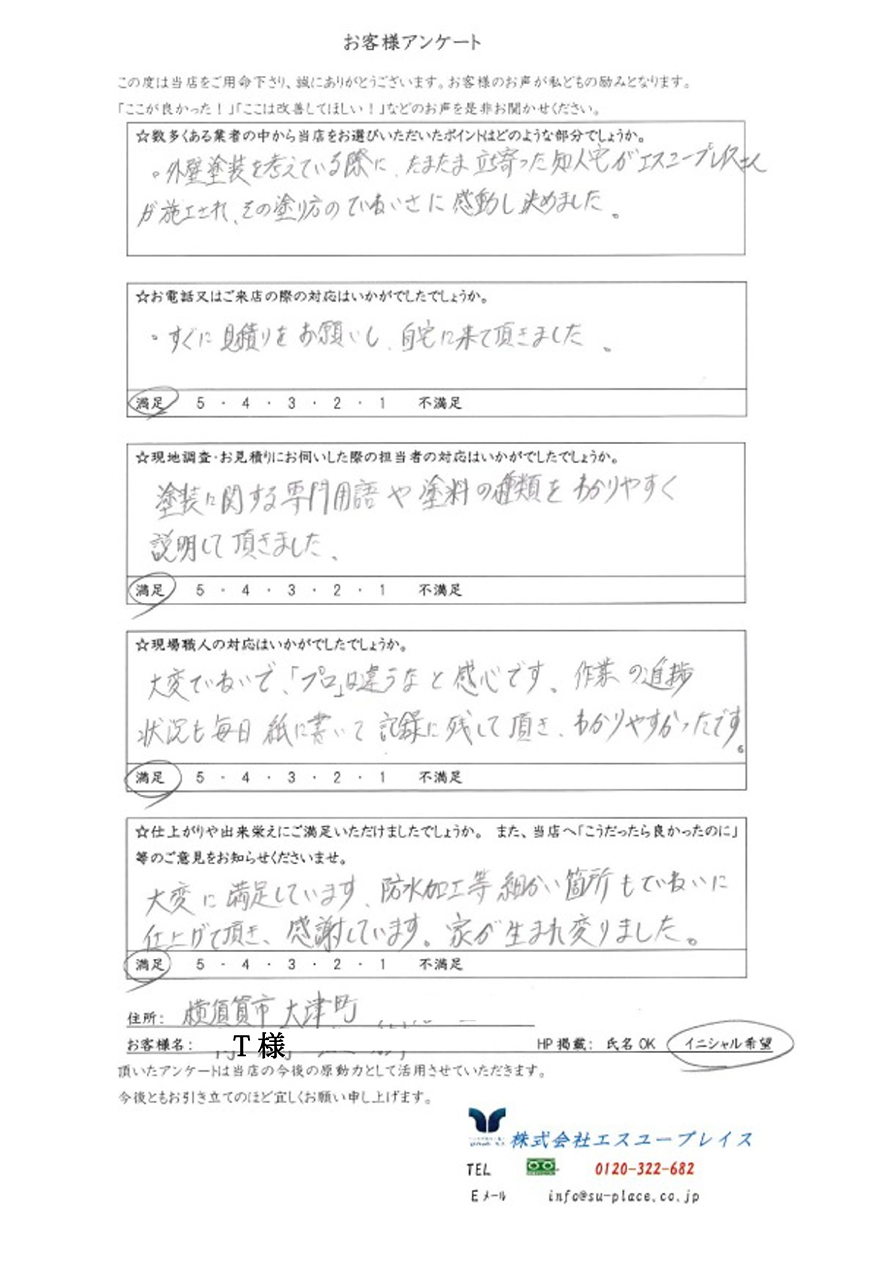 お客様アンケート
この度は当店をご用命下さり、誠にありがとうございます。お客様のお声が私どもの励みとなります。
「ここが良かった！」「ここは改善してほしい！」などのお声を是非お聞かせください。
☆数多くある業者の中から当店をお選びいただいたポイントはどのような部分でしょうか。
。外壁塗装を考えている際に、たまたま立寄った知人宅がエスユープレイスさん
が施工され、その塗り方のていねいさに感動し決めました。
☆お電話又はご来店の際の対応はいかがでしたでしょうか。
・すぐに見積りをお願いし、自宅に来て頂きました。
満足 5 ・ 4 ・ 3 ・ 2 ・ 1 不満足
☆現地調査・お見積りにお伺いした際の担当者の対応はいかがでしたでしょうか。
塗装に関する専門用語や塗料の種類をわかりやすく
説明して頂きました、
満足 5 ・ 4 ・ 3 ・ 2 ・ 1 不満足
☆現場職人の対応はいかがでしたでしょうか。
大変ていねいで、「プロ」は違うなと感心です、作業の進捗
状況も毎日紙に書いて記録に残して頂き、わかりやすかったです。
満足 5 ・ 4 ・ 3 ・ 2 ・ 1 不満足
☆仕上がりや出来栄えにご満足いただけましたでしょうか。 また、当店へ「こうだったら良かったのに」
等のご意見をお知らせくださいませ。
大変に満足しています、防水加工等細かい箇所もていねいに
仕上げて頂き、感謝しています。家が生まれ変りました。
満足 5 ・ 4 ・ 3 ・ 2 ・ 1 不満足
住所: 横須賀市大津町
お客様名: T様 HP掲載: 氏名OK イニシャル希望
頂いたアンケートは当店の今後の原動力として活用させていただきます。
今後ともお引き立てのほど宜しくお願い申し上げます。
株式会社エスユープレイス
TEL 0120-322-682
Eメール info@su-place.co.jp